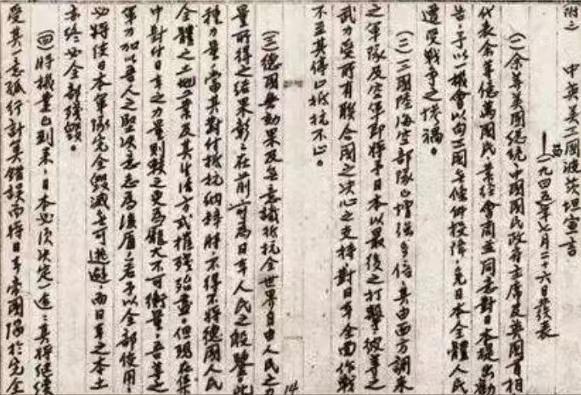 附之 中英美三國波茨坦宣言
(一九四五年七月二十六日發表)
(一)余等美國總統中國國民政府主席及英國首相
代表余等億萬國民,業經會商並同意對日本提出勸
告予以一機會以向三國無條件投降,免日本全體人民
遭受戰爭之慘禍。
(二)三國陸海空部隊已增強多倍,其由西方調來
之軍隊及空軍即將予日本以最後之打擊,彼等之
武力受所有聯合國之決心之支持對日本全面作戰
不至其停止抵抗不止。
14
(三)德國無效果及無意識抵抗全世界自由人民之力
量所得之結果彰彰在前,可為日本人民之殷鑒,此
種力量當其對付抵抗納粹時不得不將德國人民
全體之土地工業及其生活方式摧殘殆盡,但現在集
中對付日本之力量則較之更為龐大不可衡量,吾等之
軍力加以吾人之堅決意志為後盾,若予以全部使用,
必將使日本軍隊完全毀滅無可逃避,而日本之本土
亦終必全部殘毀。
(四)時機業已到來,日本必須決定一途:其將繼續
受其一意孤行計算錯誤而將日本帝國陷於完全